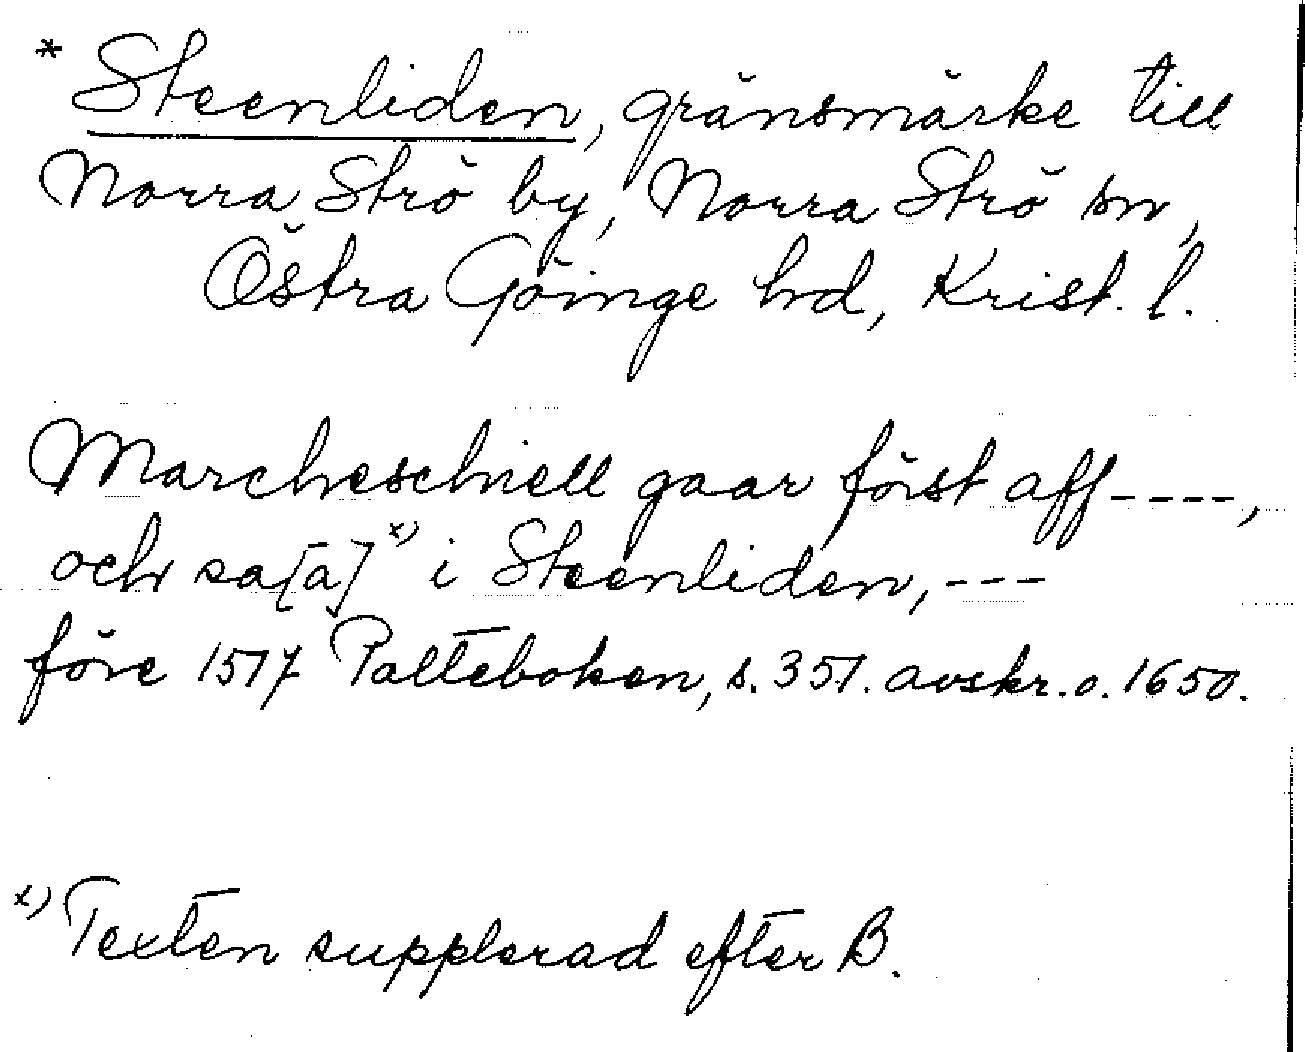 * Steenliden, gränsmärke till
Norra Strö by, Norra Strö sn,
Östra Göinge hd, Krist. l.
Marcheschiell gaar först aff ----,
och sa[a] x) i Steenliden, ---
före 1517 Palteboken, s. 351. avskr. o. 1650.
x) Texten supplerad efter B.